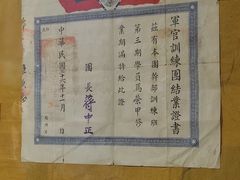 軍官訓練團結業證書
茲有本團幹部訓練班
第三期學員馬榮甲修
業期滿特給此證
團長 蔣中正
中華民國三十六年十一月 日